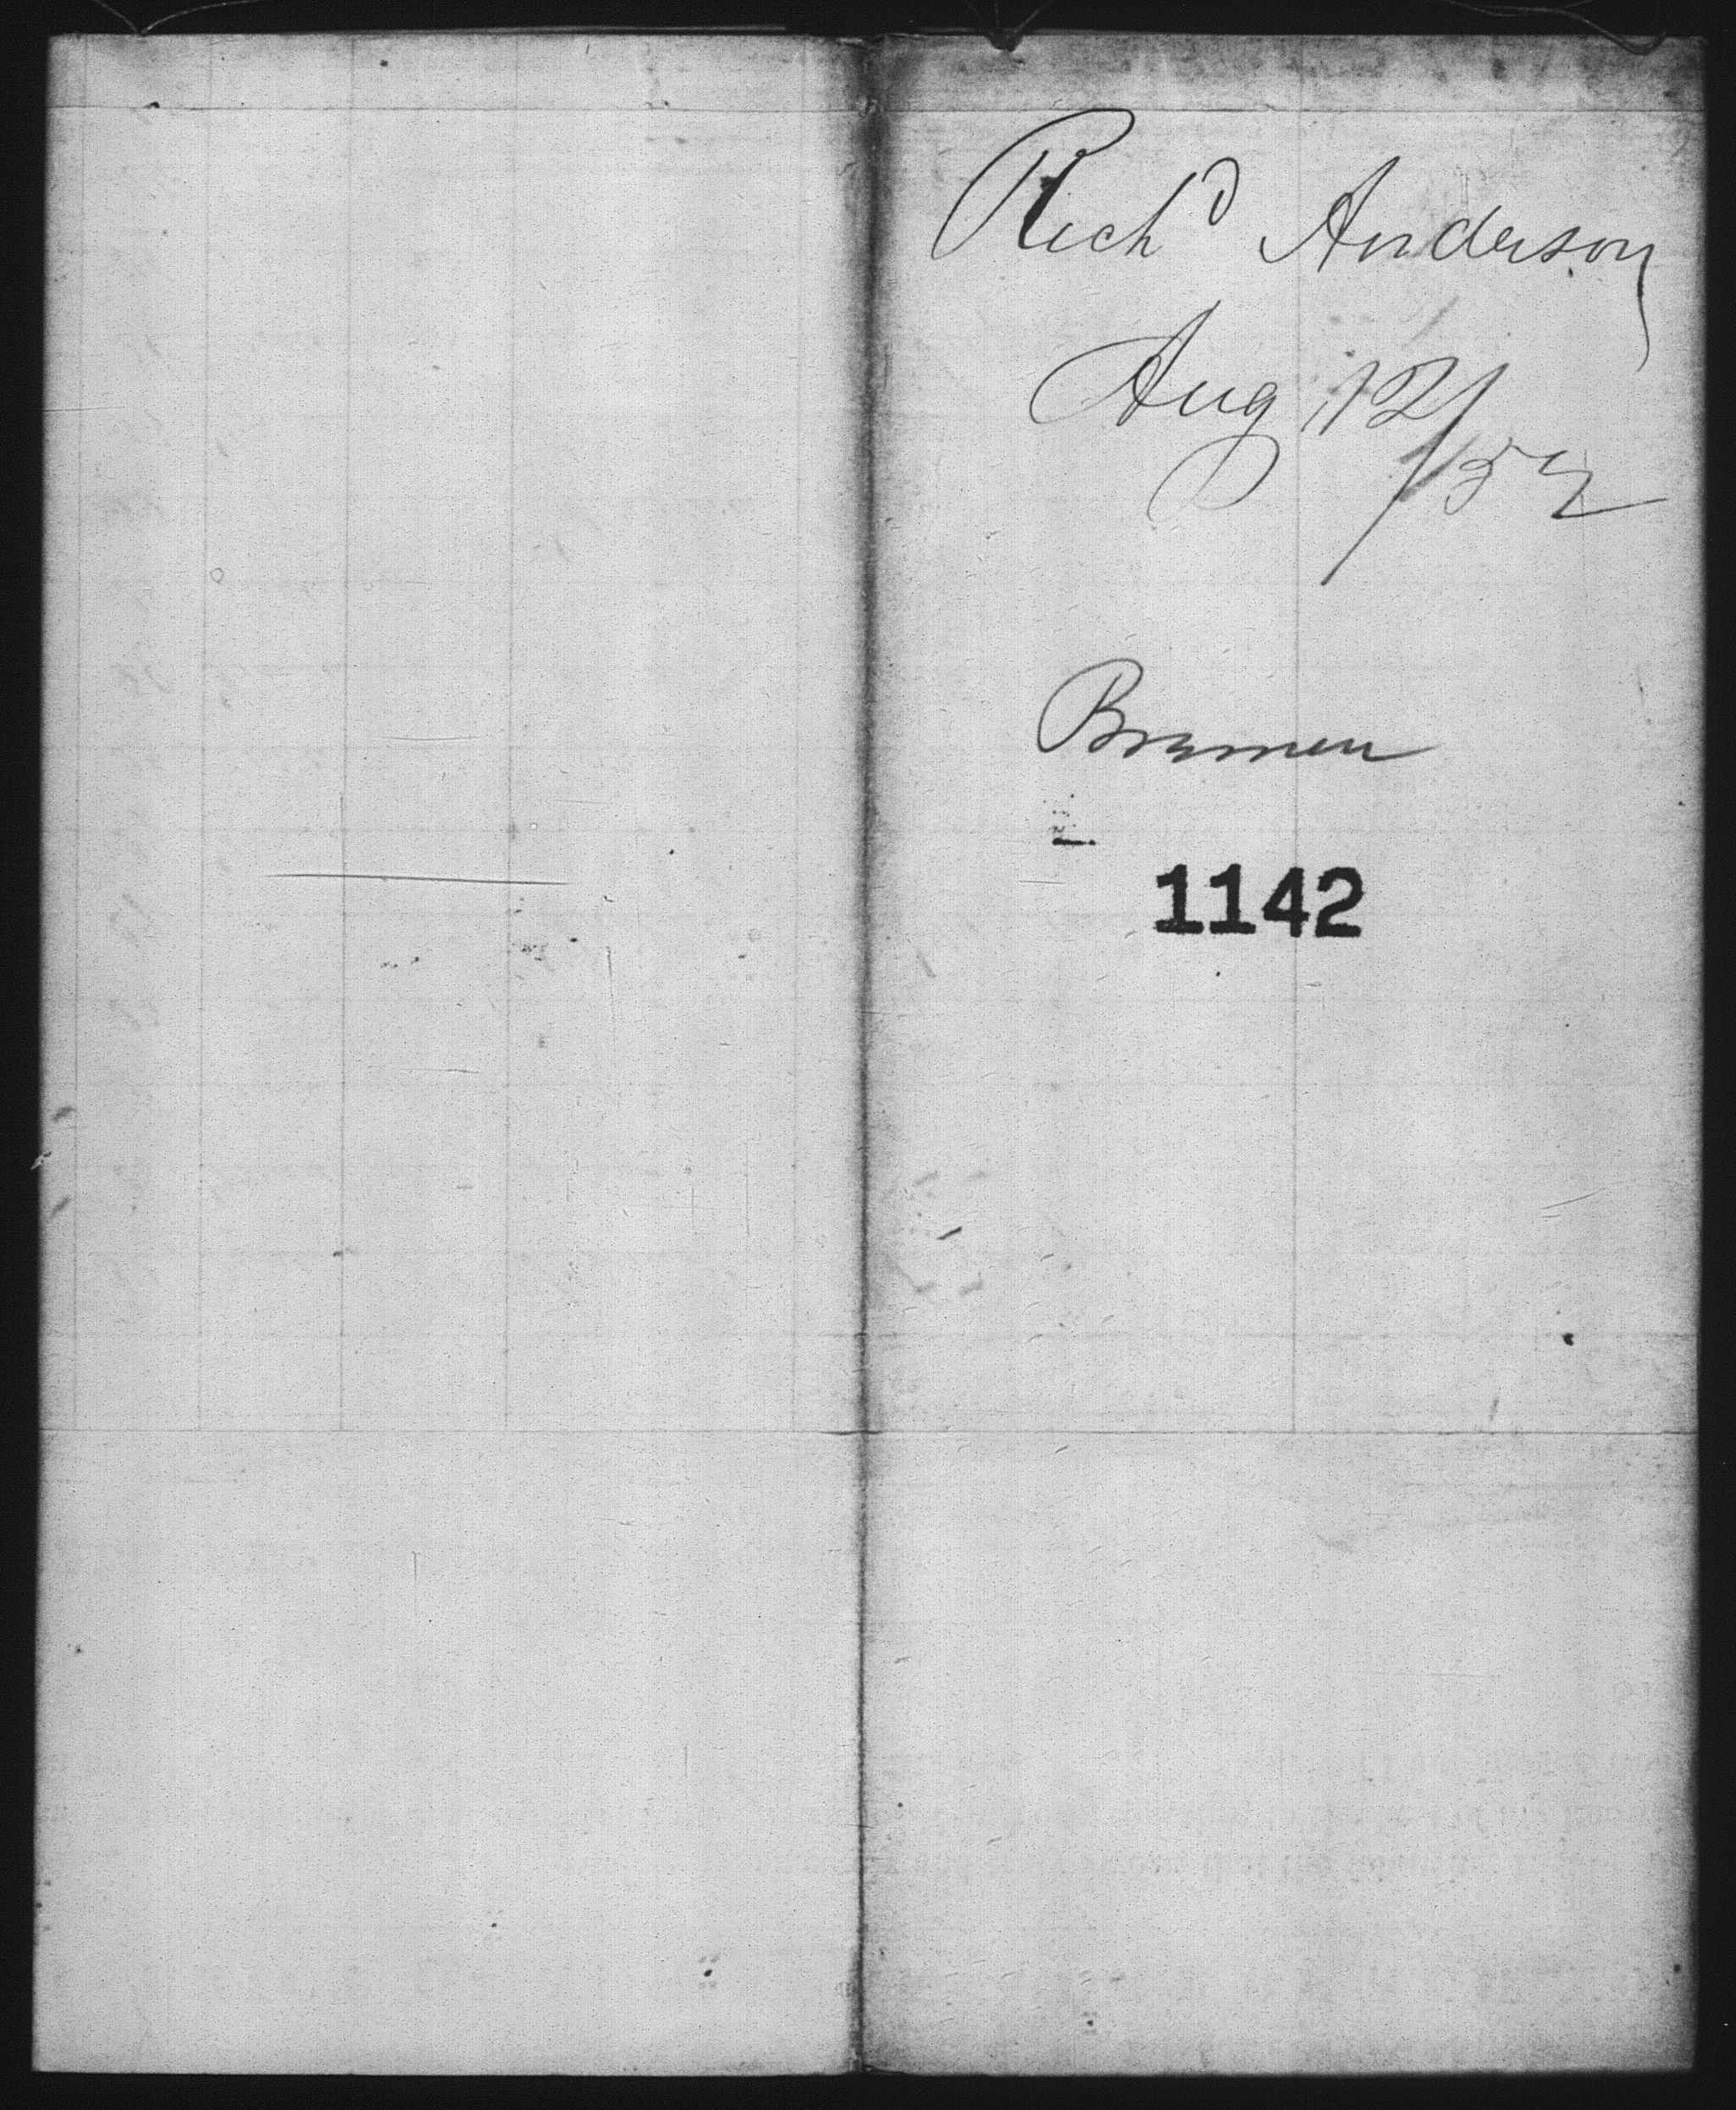 Rich^d Anderson
Aug 12/52
Bremen
1142